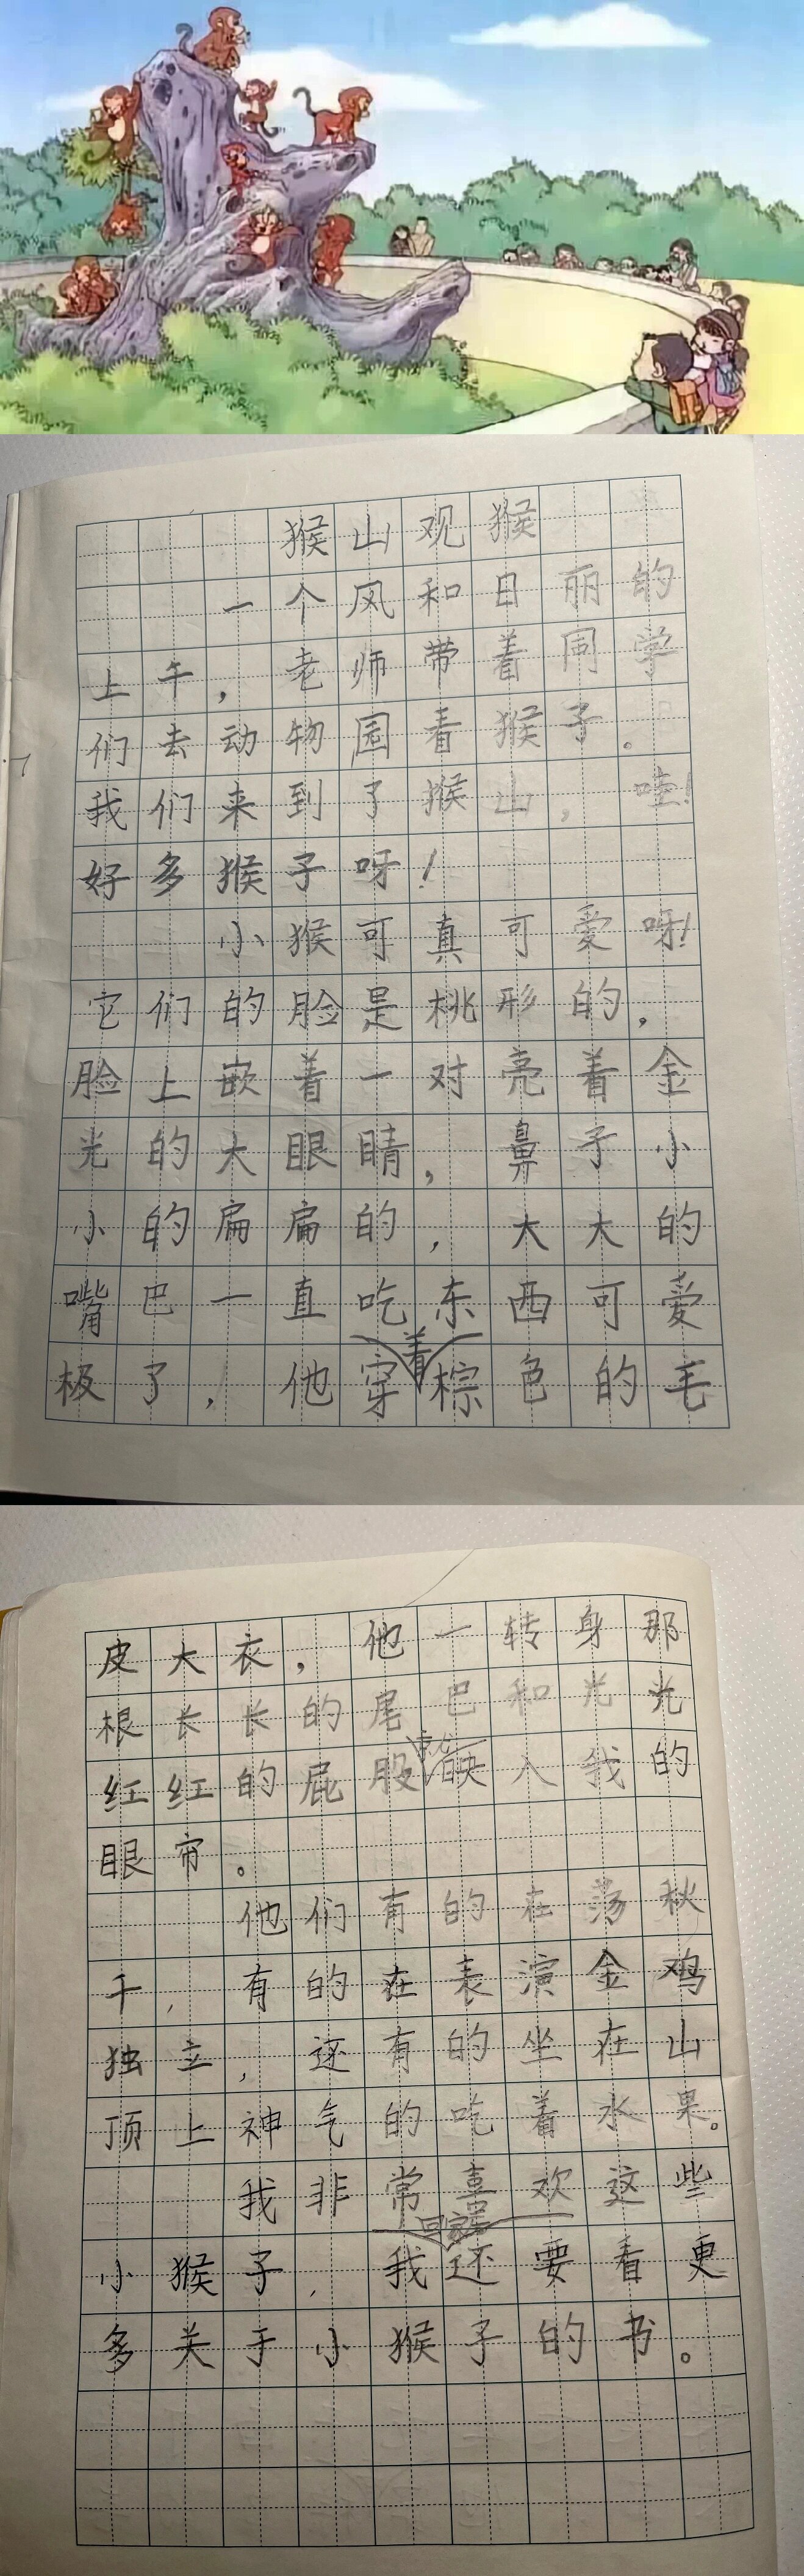 猴山观猴
一个风和日丽的
上午，老师带着同学
们去动物园看猴子。
我们来到了猴山，哇！
好多猴子呀！
小猴可真可爱呀！
它们的脸是桃形的，
脸上嵌着一对亮着金
光的大眼睛，鼻子小
小的扁扁的，大大的
嘴巴一直吃东西可爱
极了，他穿着棕色的毛
皮大衣，他一转身那
根长长的尾巴和光光
红红的屁股映入我的
眼帘。
他们有的在荡秋
千，有的在表演金鸡
独立，还有的坐在山
顶上神气的吃着水果。
我非常喜欢这些
小猴子，我还要看更
多关于小猴子的书。